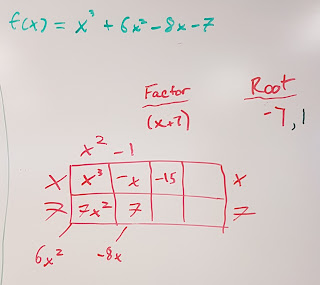 f(x) = x³ + 6x² - 8x - 7
Factor Root
(x+7) -7, 1
x² -1
x x³ -x -15 x
7 7x² 7 7
6x² -8x